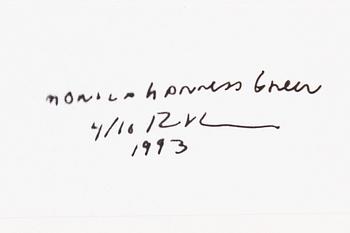 monica harness green
4/10
1993